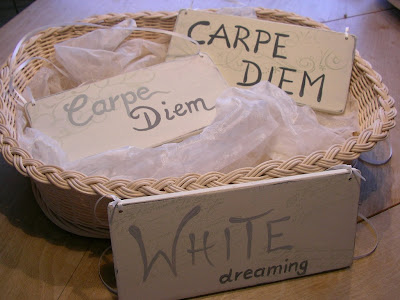 CARPE
DIEM
Carpe
Diem
WHITE
dreaming